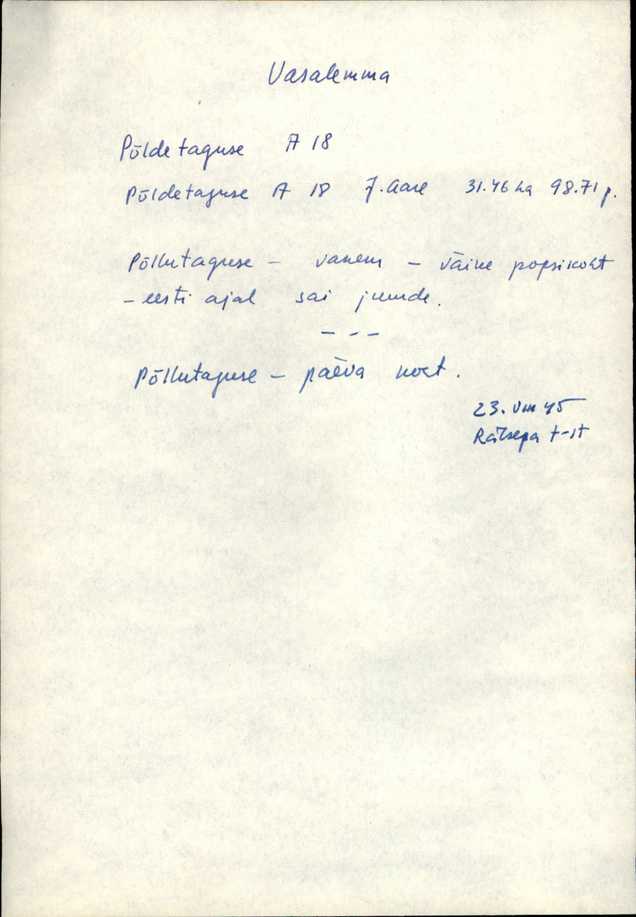 Vasalemma
Põldetaguse A 18
Põldetaguse A 18 J. Aare 31.46 ha 98.71 p.
Põllutaguse – vanem – väike popsikoht
– eesti ajal sai juurde.
– – –
Põllutaguse – päeva koht.
23. VIII 45
Rätsepa t-lt